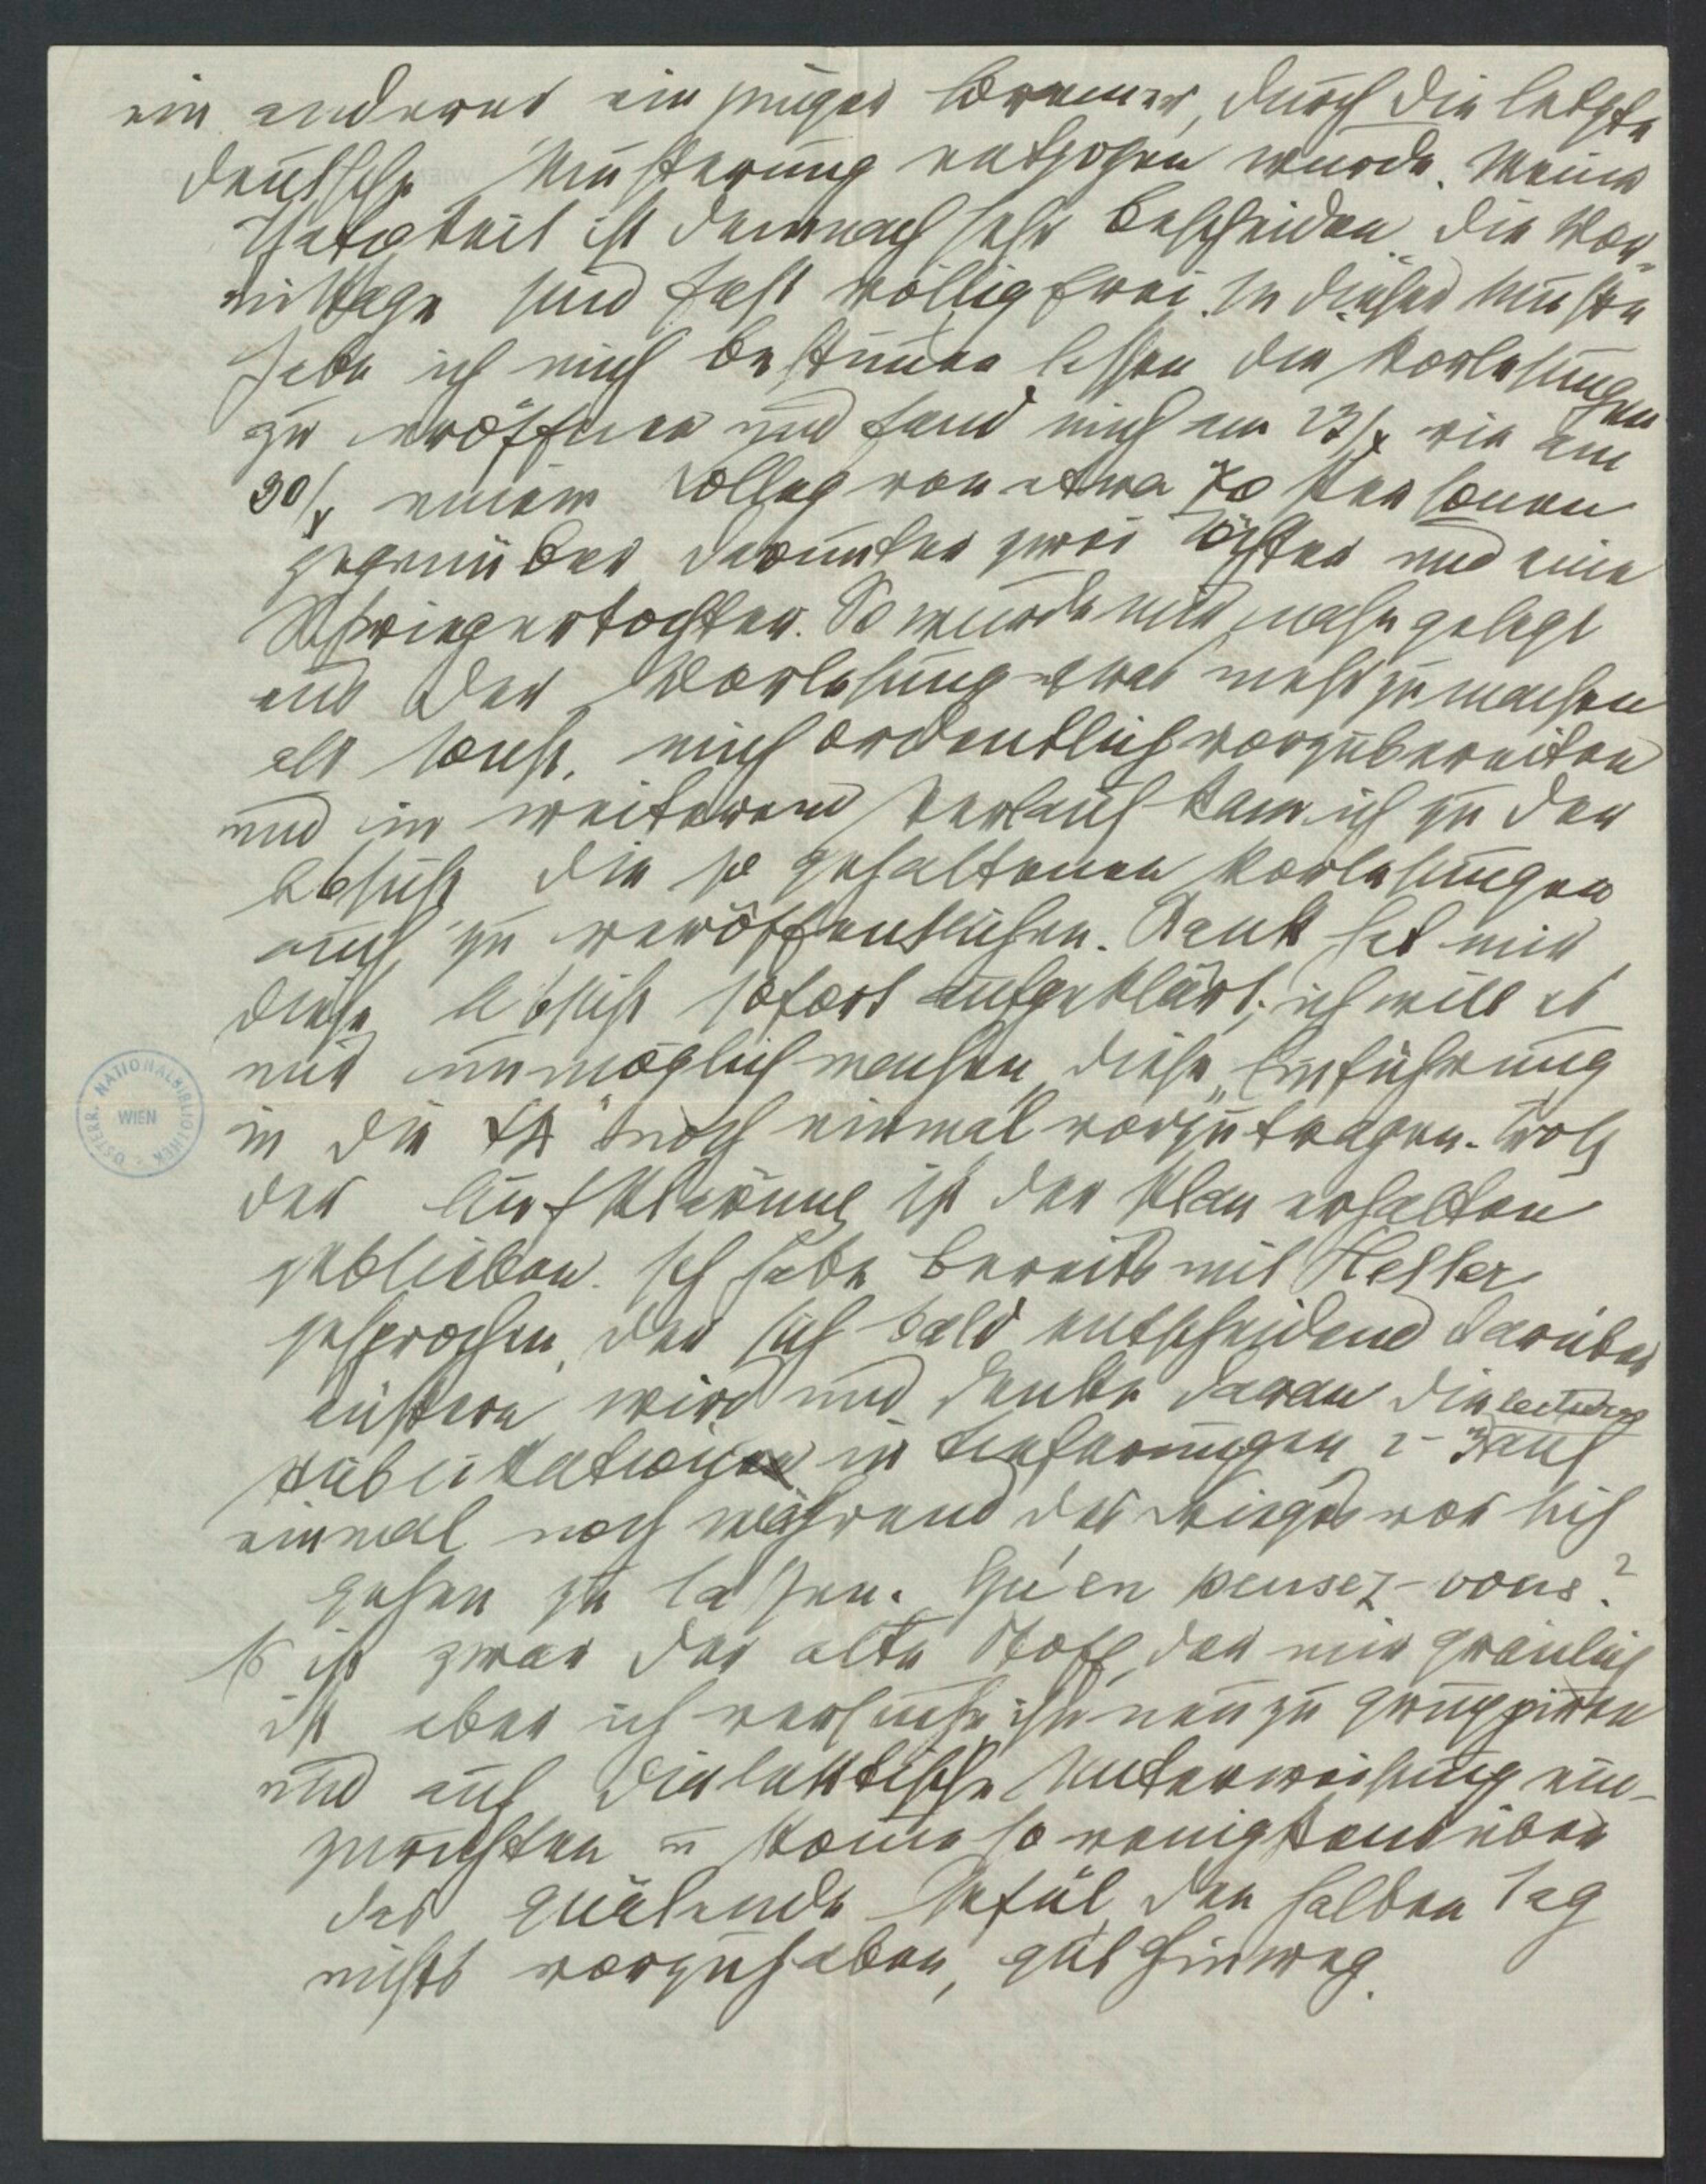 ein anderer ein junger Bremer, durch die letzte
deutsche Musterung entzogen wurde. Meine
Thätigkeit ist demnach sehr bescheiden, die Vor-
mittage sind fast völlig frei. In dieser Muße
habe ich mich bestimmen lassen die Vorlesungen
zu eröffnen und fand mich am 23/X wie am
30/X einem Colleg von etwa 70 Personen
gegenüber darunter zwei Töchter und eine
Schwiegertochter. So wurde mir nahe gelegt
aus der Vorlesung etwas mehr zu machen
als sonst, mich ordentlich vorzubereiten
und im weiteren Verlauf kam ich zu der
Absicht die so gehaltenen Vorlesungen
auch zu veröffentlichen. Rank hat mir
diese Absicht sofort aufgeklärt; ich will es
mir unmöglich machen, diese „Einführung
in die ΨΑ“ noch einmal vorzutragen. Trotz
der Aufklärung ist der Plan erhalten
geblieben. Ich habe bereits mit Heller
gesprochen, der sich bald entscheidend darüber
äußern wird und denke daran die lectures
Publikation in Lieferungen 2-3 auf
einmal noch während des Krieges vor sich
gehen zu lassen. Qu'en pensez-vous?
Es ist zwar der alte Stoff, der mir gräulich
ist aber ich versuche ihn neu zu gruppiren
und auf dialektische Unterweisung ein-
zurichten u komme so wenigstens über
das quälende Gefül, den halben Tag
nichts vorzuhaben, gut hinweg.
ÖSTERR. NATIONALBIBLIOTHEK
WIEN